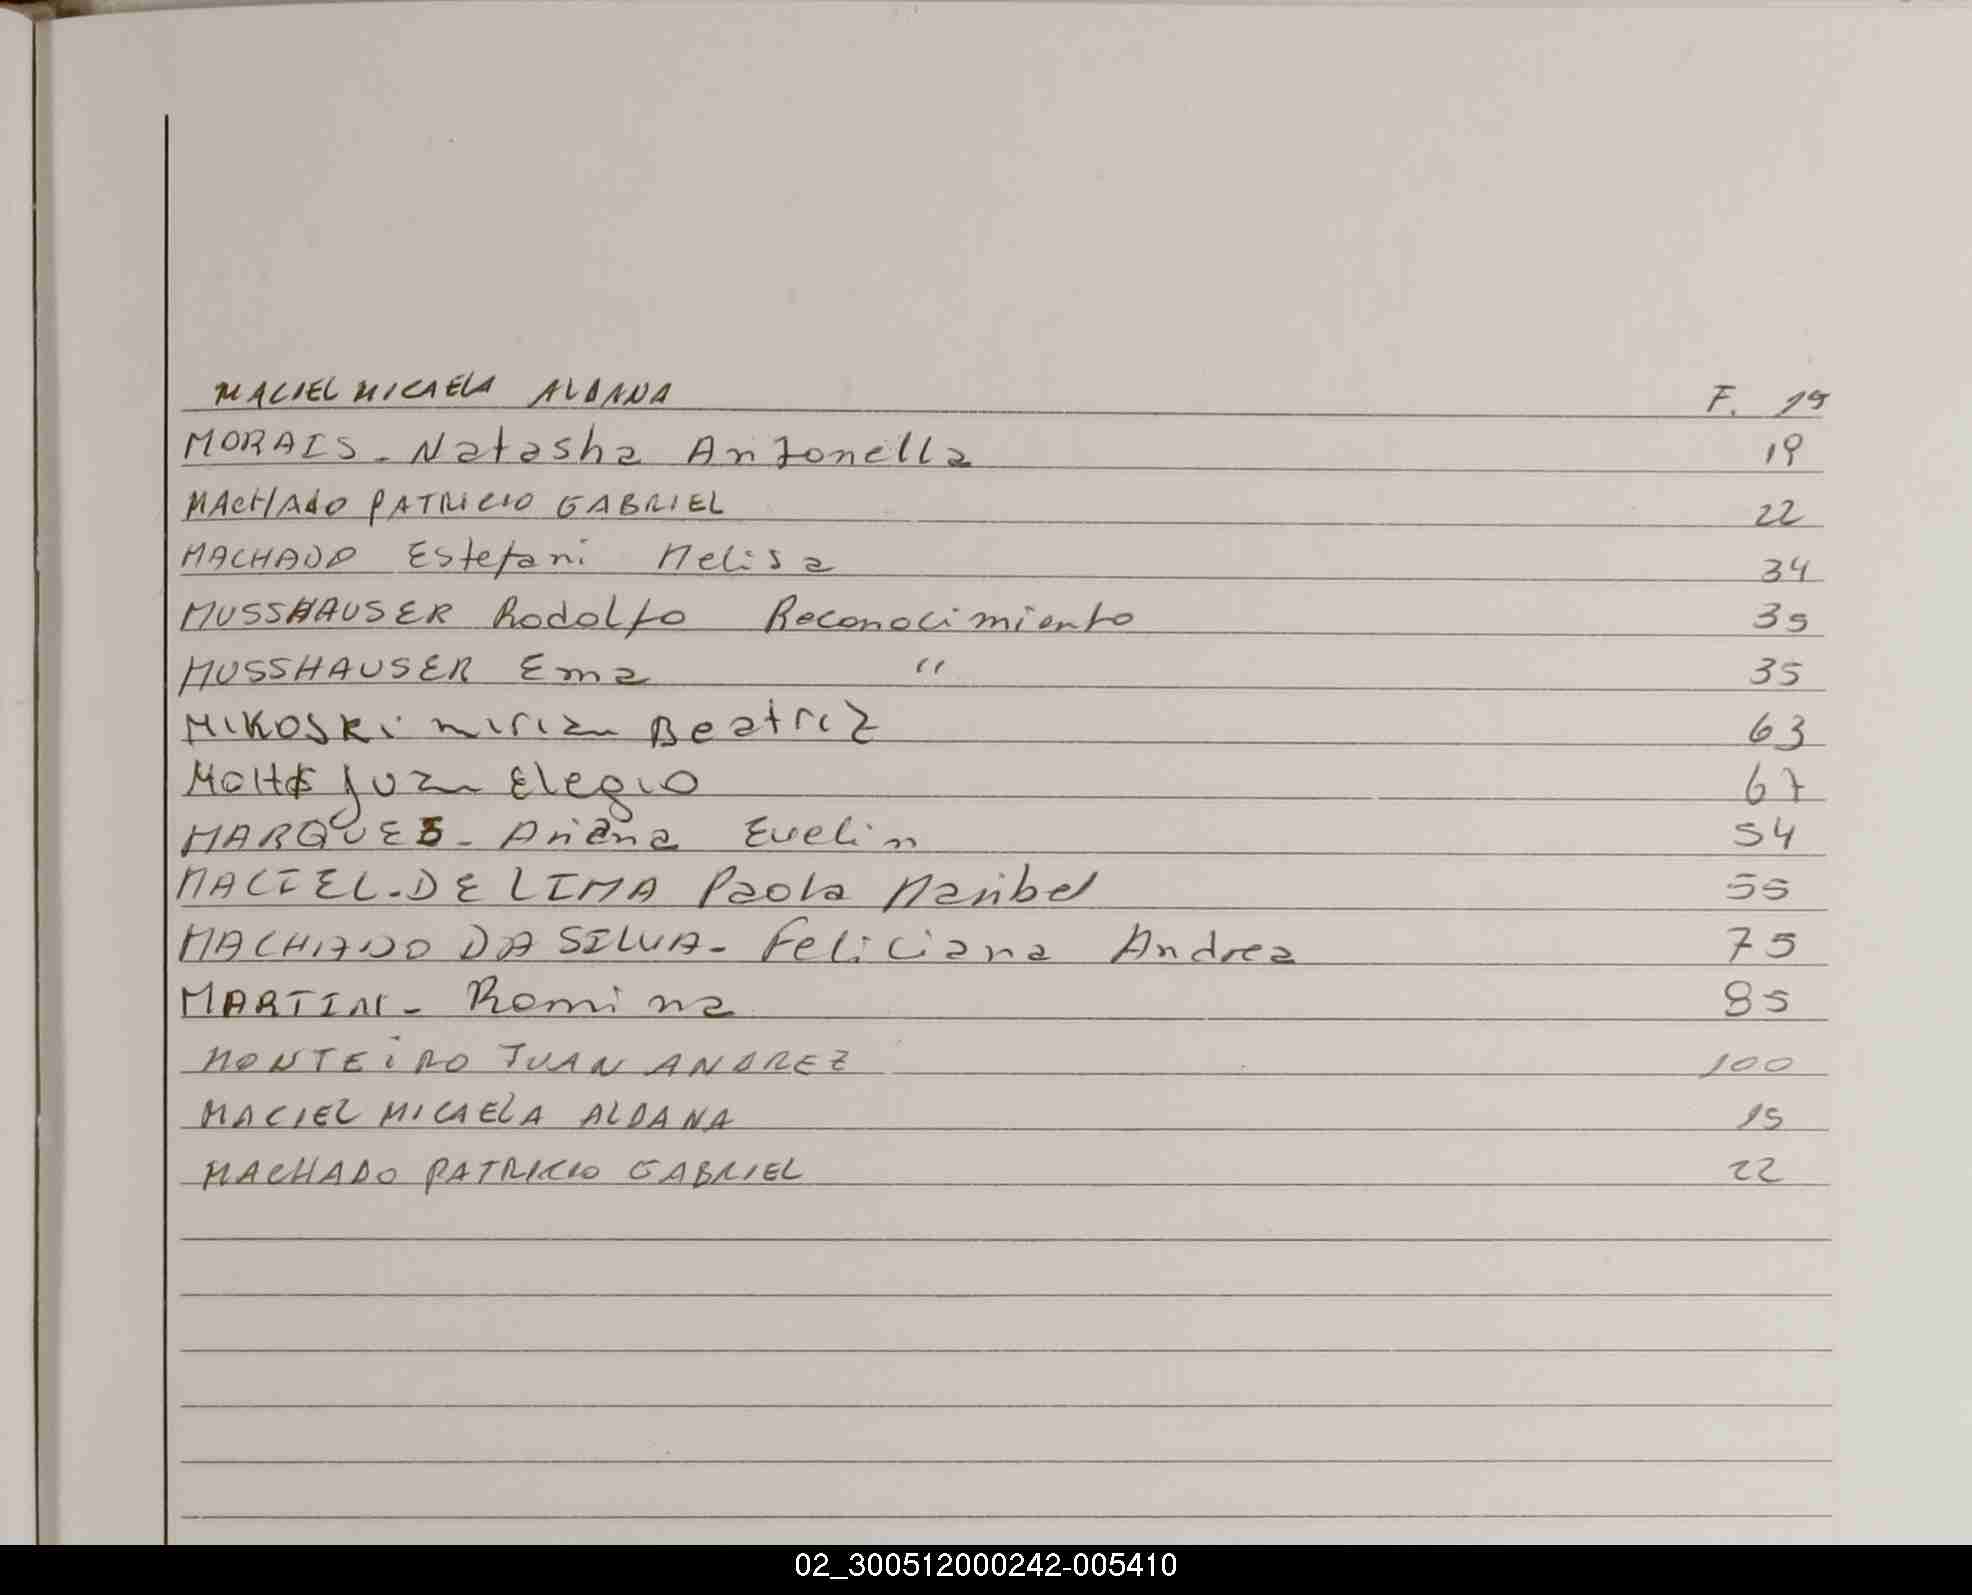 MACIEL MICAELA ALDANA F. 15
MORAIS - Natasha Antonella 19
MACHADO PATRICIO GABRIEL 22
MACHADO Estefani Melisa 34
MUSSHAUSER Rodolfo Reconocimiento 35
MUSSHAUSER Ema " 35
MIKOSKi mirian Beatriz 63
Juan Elegio 67
MARQUES - Ariana Evelin 54
MACIEL - DE LIMA Paola Maribel 55
MACHADO DA SILVA - Feliciana Andrea 75
MARTIN - Romina 85
MONTEiRO JUAN ANDREZ 100
MACIEL MICAELA ALDANA 15
MACHADO PATRICIO GABRIEL 22
02_300512000242-005410